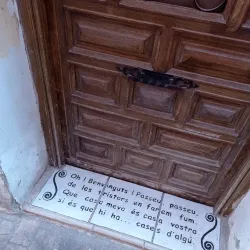 Oh! Benvinguts! Passeu, passeu,
de les tristors en farem fum.
Que casa meva és casa vostra
si és que hi ha... cases d'algú.